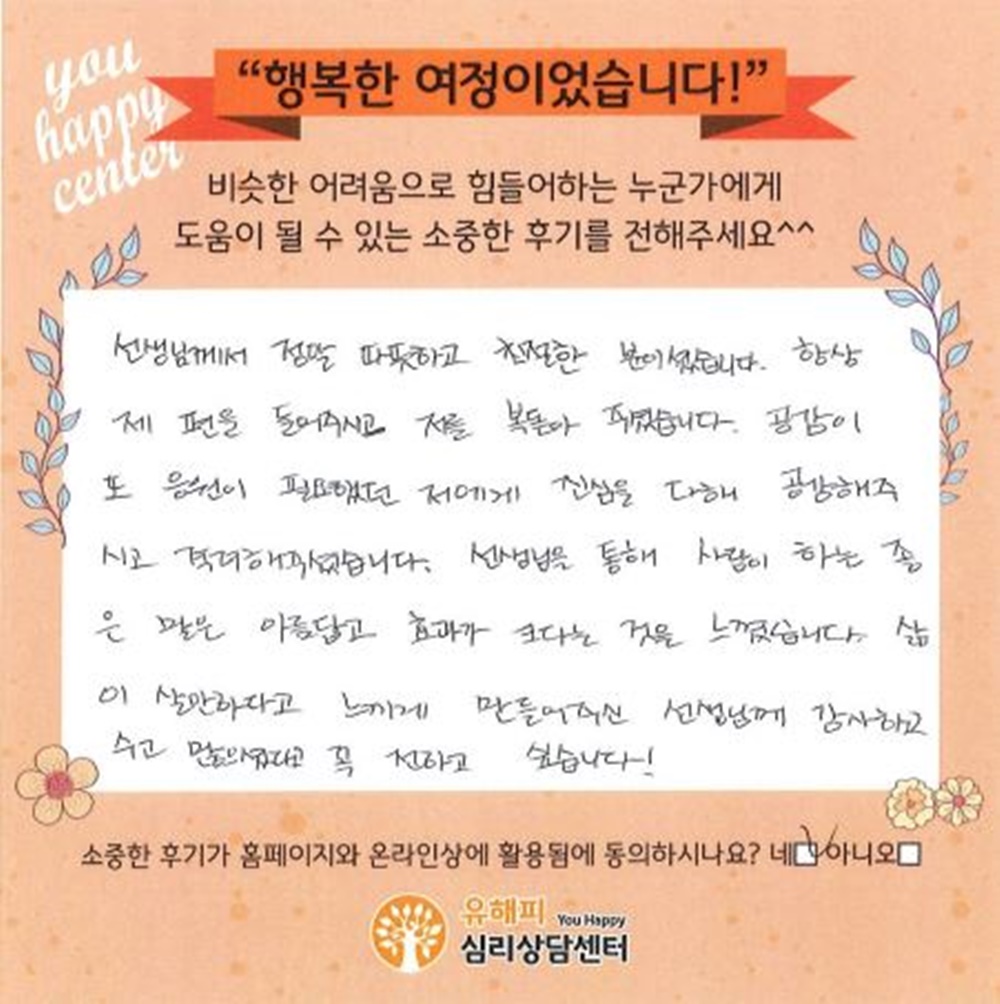 you
happy
center
“행복한 여정이었습니다!”
비슷한 어려움으로 힘들어하는 누군가에게
도움이 될 수 있는 소중한 후기를 전해주세요^^
선생님께서 정말 따뜻하고 친절한 분이셨습니다. 항상
제 편을 들어주시고 저를 북돋아 주셨습니다. 공감이
또 응원이 필요했던 저에게 진심을 다해 공감해주
시고 격려해주셨습니다. 선생님을 통해 사람이 하는 좋
은 말은 아름답고 효과가 크다는 것을 느꼈습니다. 삶
이 살만하다고 느끼게 만들어주신 선생님께 감사하고
수고 많으셨다고 꼭 전하고 싶습니다!
소중한 후기가 홈페이지와 온라인상에 활용됨에 동의하시나요? 네 아니오
유해피 You Happy
심리상담센터